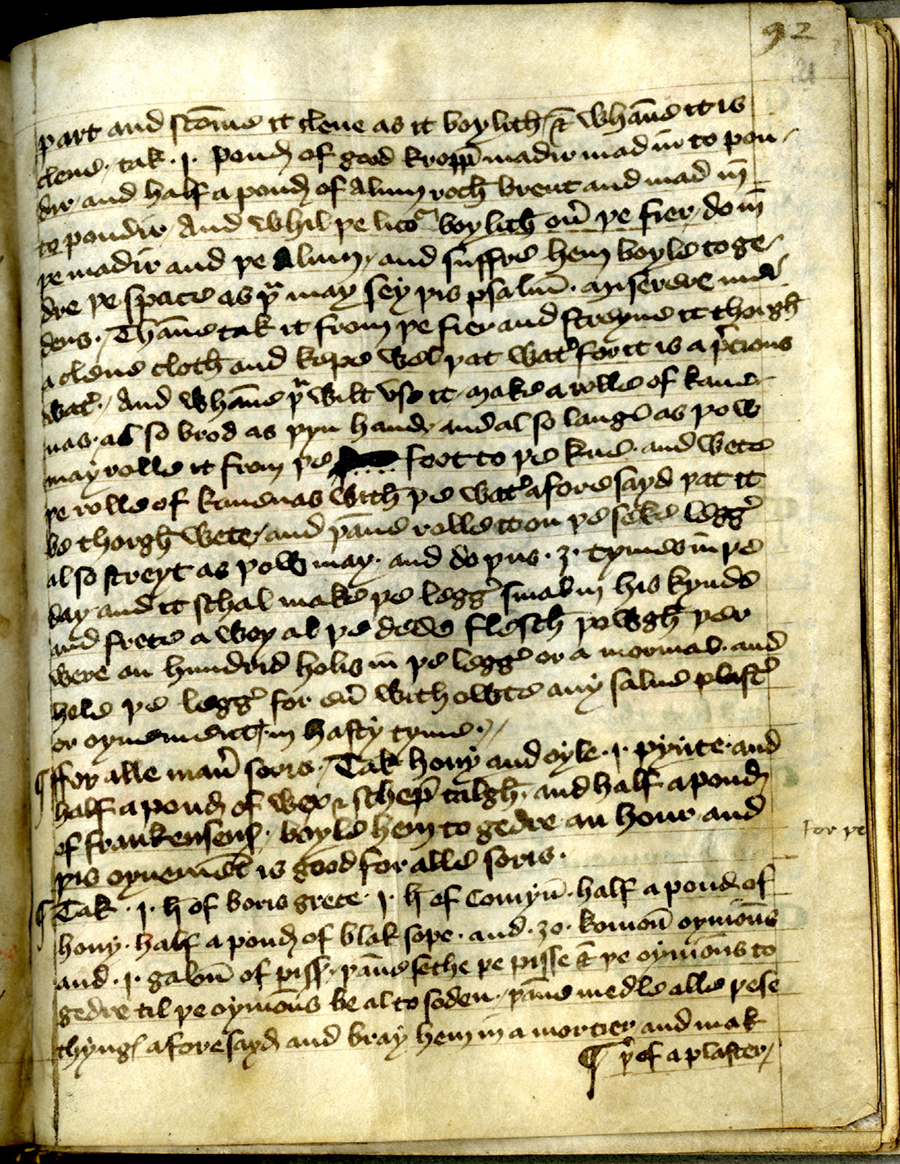 92
part and scōme it clene as it boylith & whāne it is
clene . tak . j . pond of good kropp madir mad in to pou-
dir and half a pond of Alum roch brent and mad in
to poudir And whil þe licor boylith ouer þe fier do in
þe madir and þe Alum, and suffre hem boyle toge-
dre þe space as þu may sey þis psalm . Miserere mei
deus . Thāne tak it from þe fier and streyne it thorgh
a clene cloth and kepe wel þat water for it is a precious
water . And whāne þu wilt vse it make a rolle of kane-
uas . al so brod as þyn hand and al so lange as þow
may rolle it from þe foot to þe kne . and wete
þe rolle of kaneuas with þe water afore sayd þat it
be thorgh wete, and þāne rolle it on þe seke legge
al so streyt as þow may . and do þus . 3 . tymes in þe
day and it schal make þe legge smal in his kynde
and frete a wey al þe dede flesch þowgh þer
were an hundrid holis in þe legge or a mormal . and
hele þe legge for euer with owte any salue plaster
or oynement, in hasty tyme .
¶ ffor alle maner soris . Tak hony and oyle . j . pynte and
half a pond of wex & schep talgh, and half a pond
of frankensens . boyle hem to gedre an hour and
þis oynement is good for alle soris .
¶ Tak . j . ħ of boris grece . j . ħ of Comyn . half a pond of
hony . half a pond of blak sope . and . 30 . komon oynions
and . j . galoun of piss, þāne sethe þe pisse & þe oynions to
gedre til þe oynions be al to soden . þāne medle alle þese
thynges afore sayd and bray hem in a morter and mak
¶ þer of a plaster,
for þe